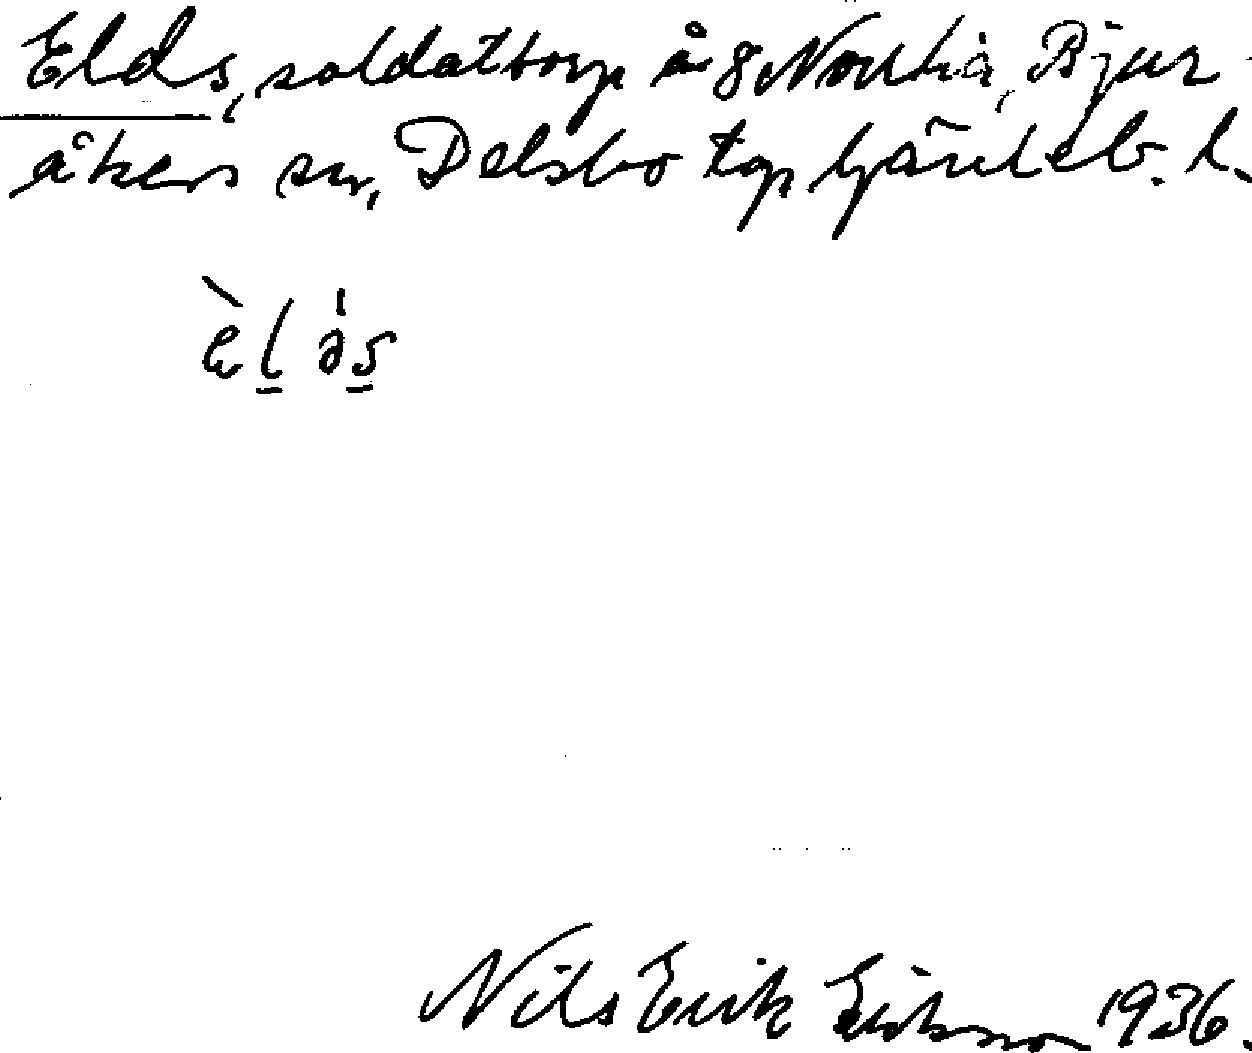 Elds, soldattorp å 8 Norrhå, Bjur-
åkers sn, Delsbo tgp Gävleb. l.
èl əs
Nils Erik Eriksson 1936.